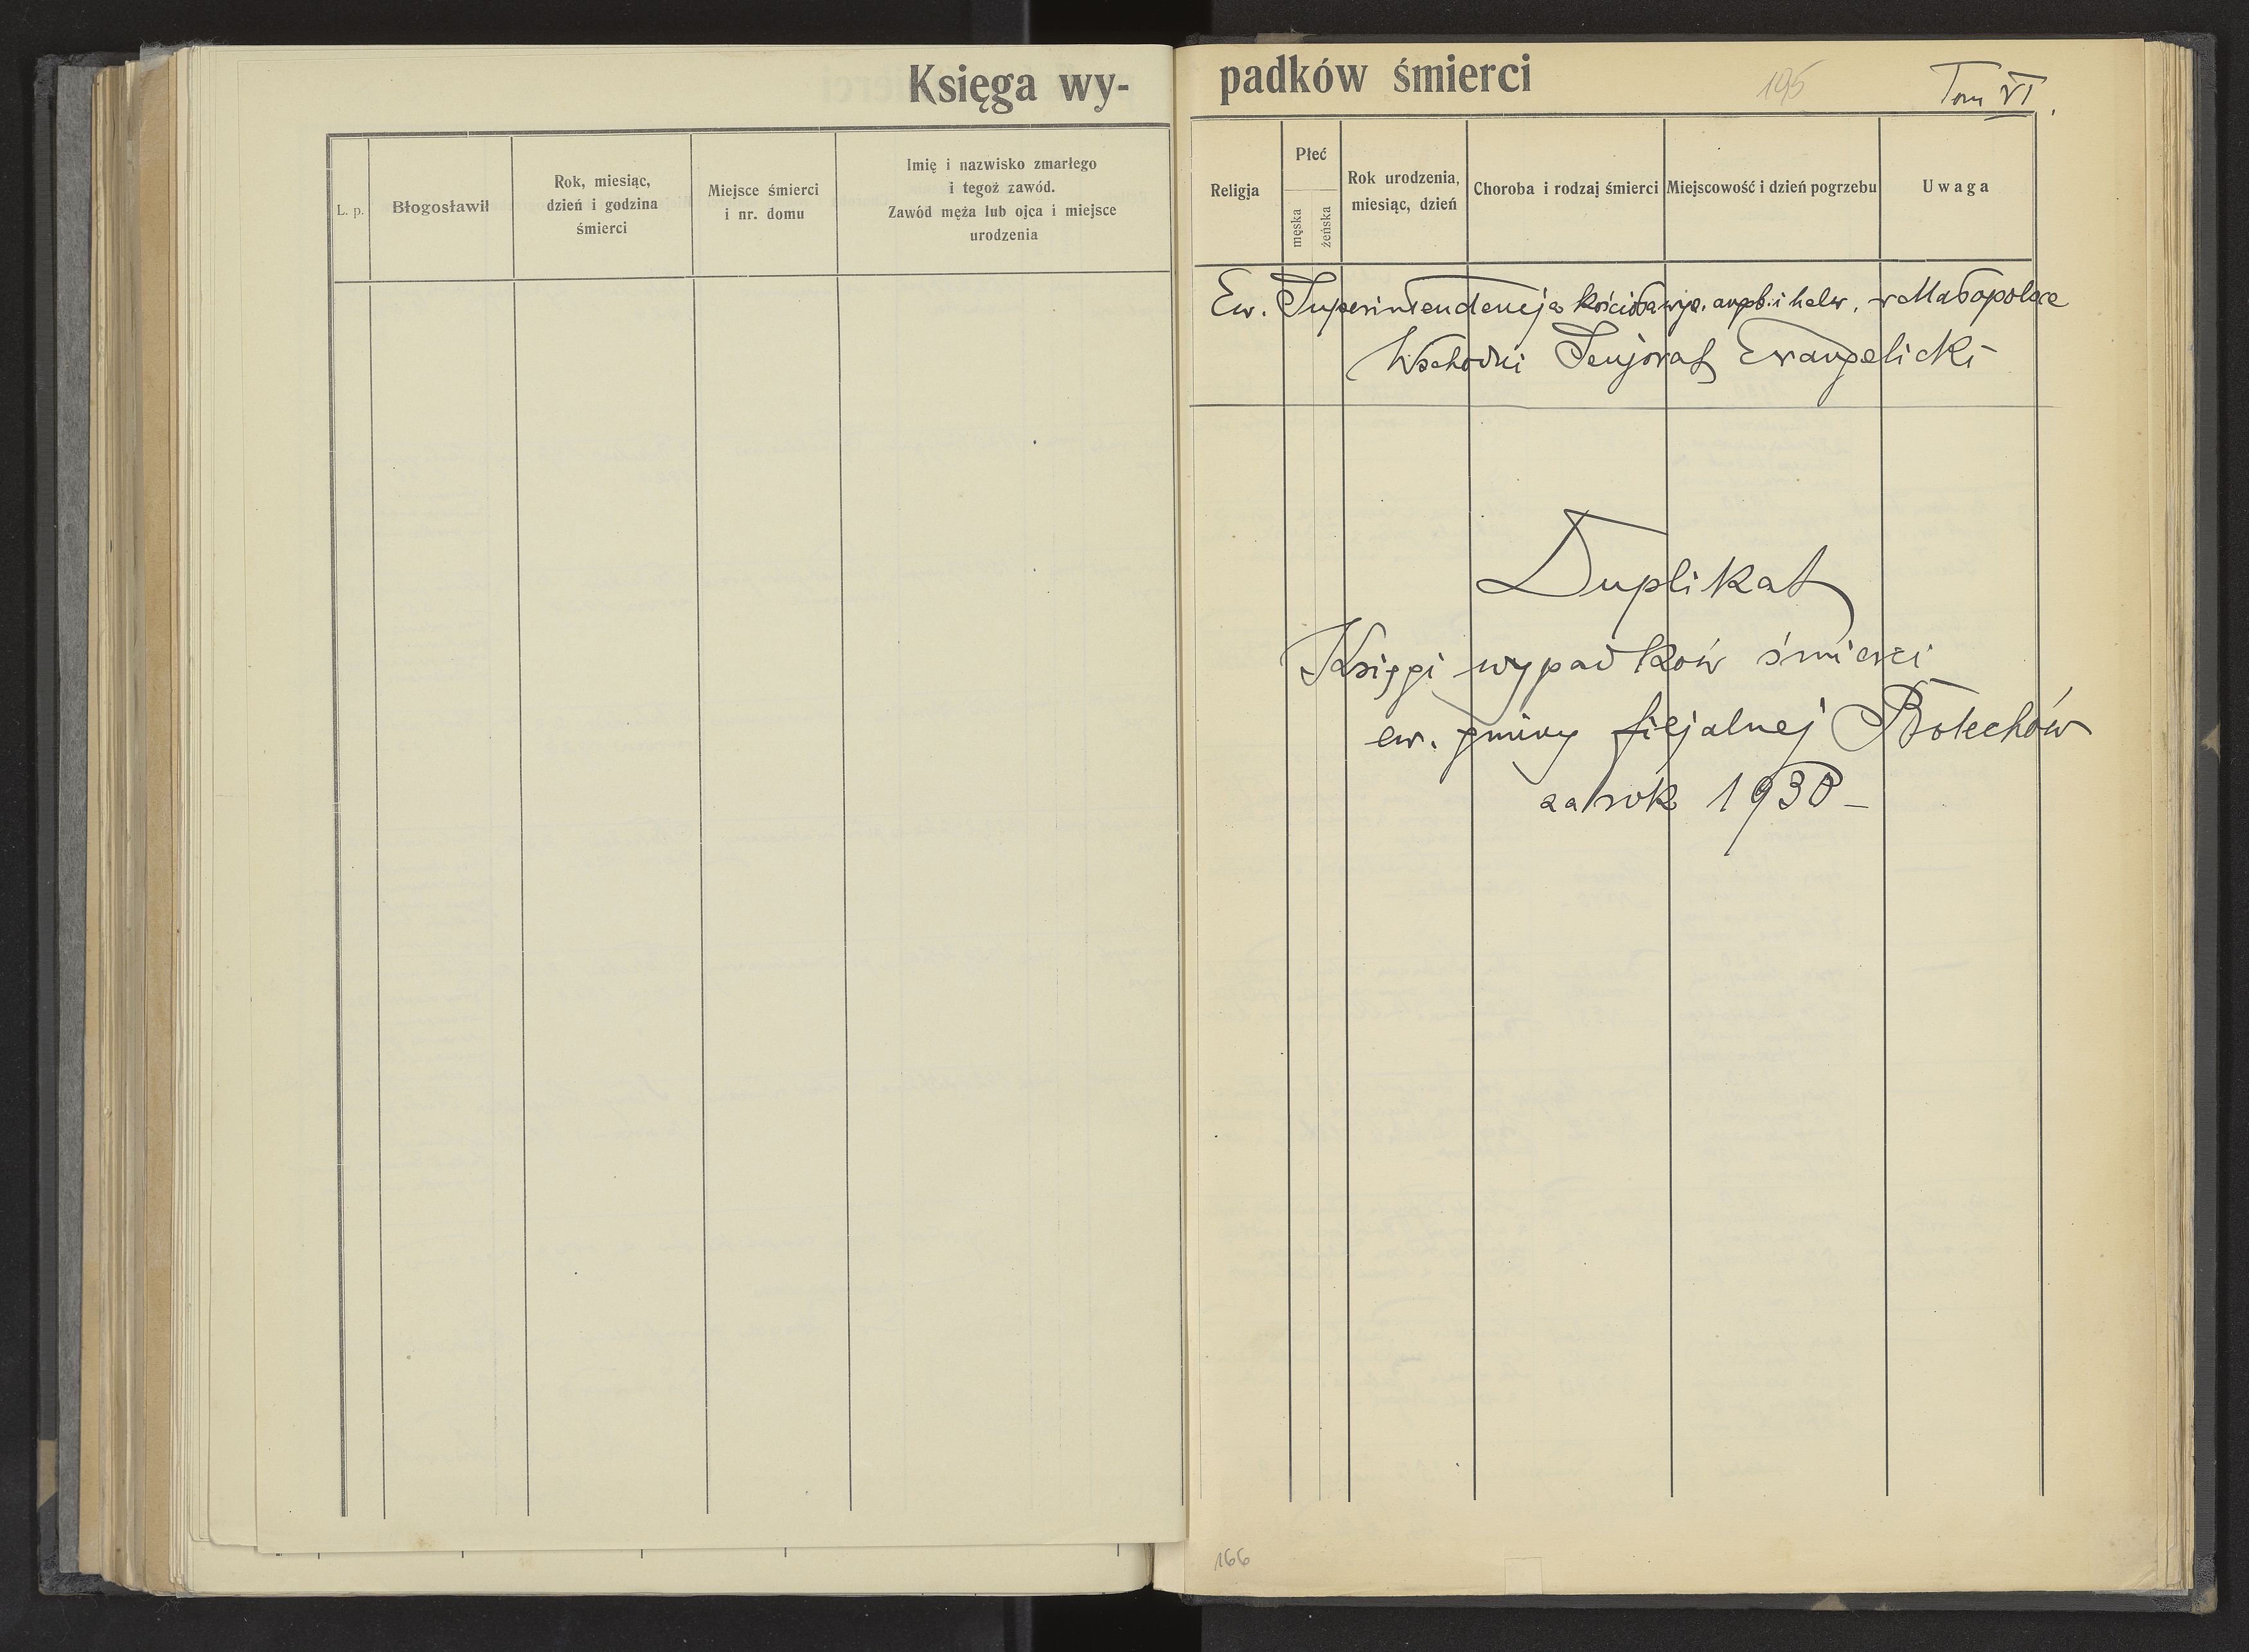 Księga wy-
L. p.
Błogosławił
Rok, miesiąc,
dzień i godzina
śmierci
Miejsce śmierci
i nr. domu
Imię i nazwisko zmarłego
i tegoż zawód.
Zawód męża lub ojca i miejsce
urodzenia
padków śmierci
195
Tom VI.
Religja
Płeć
męska
żeńska
Rok urodzenia,
miesiąc, dzień
Choroba i rodzaj śmierci
Miejscowość i dzień pogrzebu
Uwaga
Ew. Superintendencja Kościoła wyz. augsb. i helw. w Małopolsce
Wschodni Senjorat Ewangelicki
Duplikat
Księgi wypadków śmierci
ew. gminy filjalnej Bolechów
za rok 1930 –
166